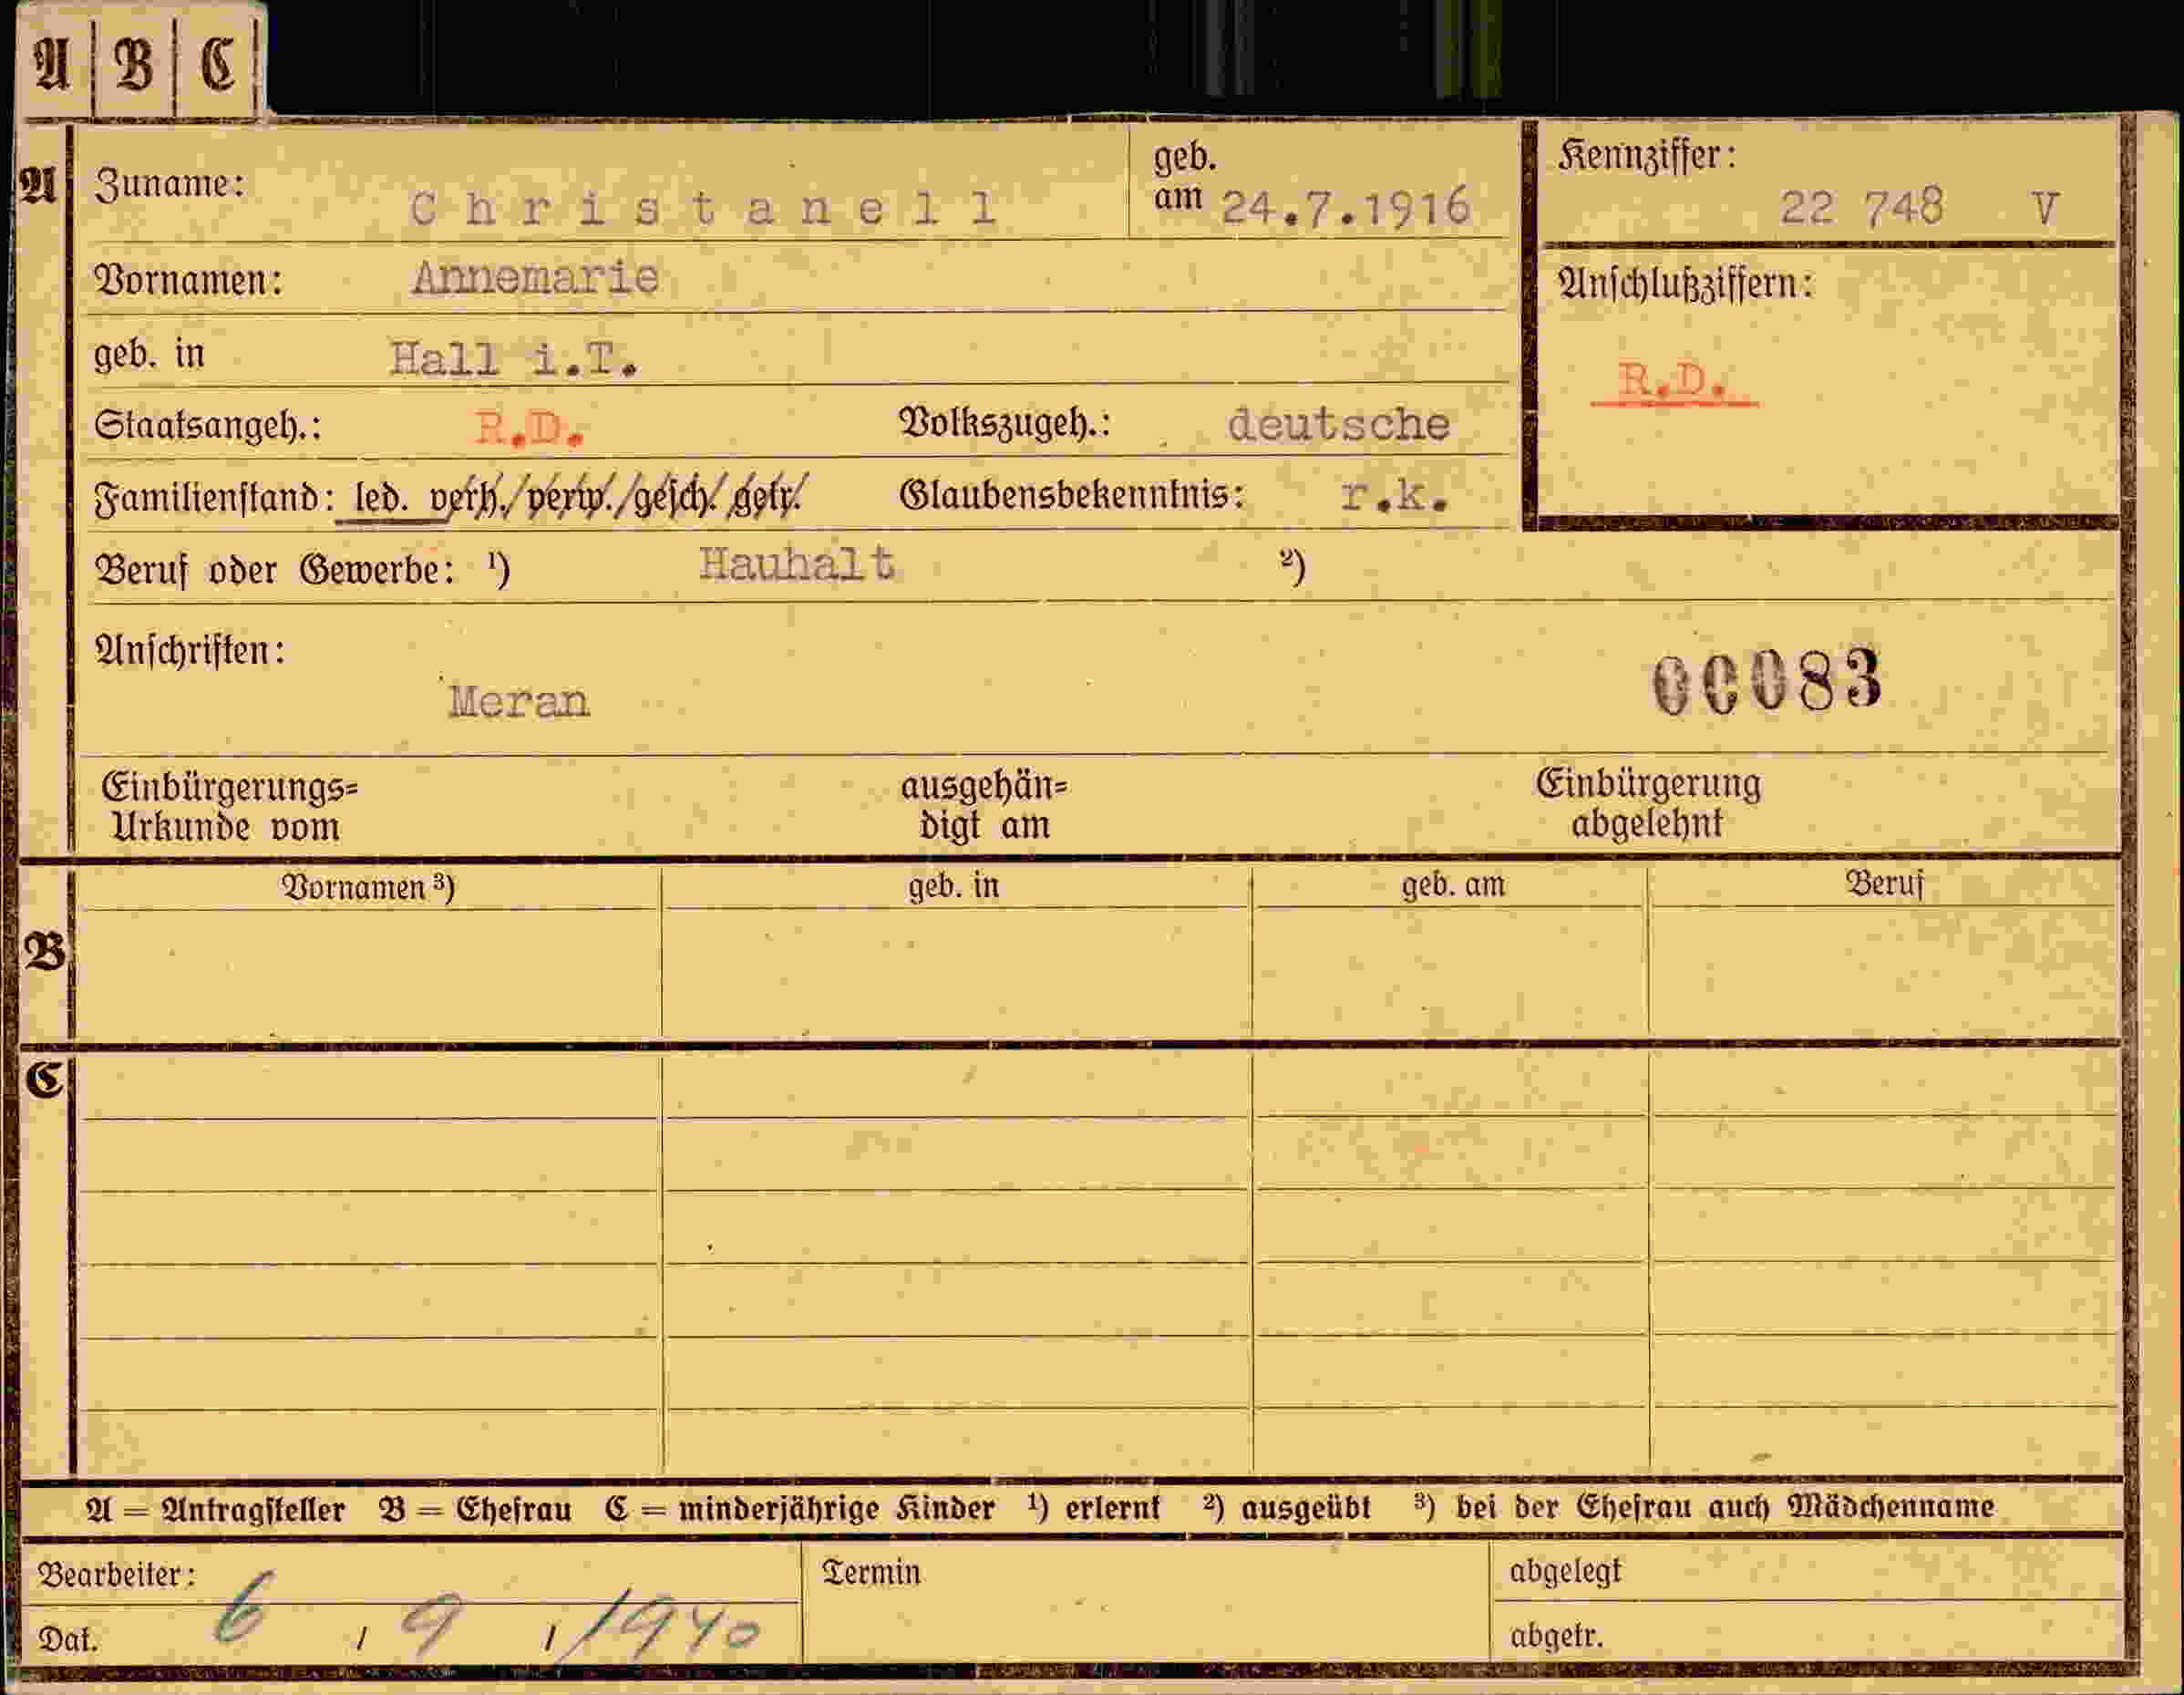 A B C
A
Zuname: Christanell geb. am 24.7.1916
Kennziffer: 22 748 V
Vornamen: Annemarie
Anschlußziffern:
R.D.
geb. in Hall i.T.
Staatsangeh.: R.D. Volkszugeh.: deutsche
Familienstand: led. verh./verw./gesch./getr. Glaubensbekenntnis: r.k.
Beruf oder Gewerbe: ¹) Hauhalt ²)
Anschriften:
Meran
00083
Einbürgerungs=
Urkunde vom
ausgehän=
digt am
Einbürgerung
abgelehnt
B
Vornamen ³) geb. in geb. am Beruf
C
A = Antragsteller B = Ehefrau C = minderjährige Kinder ¹) erlernt ²) ausgeübt ³) bei der Ehefrau auch Mädchenname
Bearbeiter:
Dat. 6 / 9 / 1940
Termin
abgelegt
abgetr.